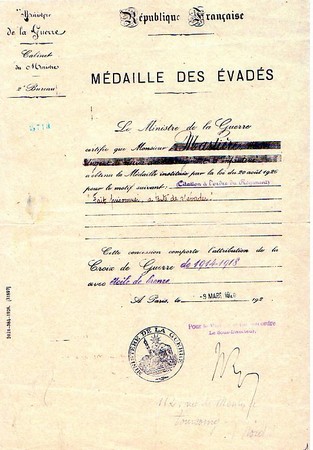 Ministère
de la Guerre
Cabinet
du Ministre
2e Bureau
République Française
MÉDAILLE DES ÉVADÉS
Le Ministre de la Guerre
certifie que Monsieur
a obtenu la Médaille instituée par la loi du 20 août 1926
pour le motif suivant: Citation à l'ordre du Régiment
"Fait prisonnier, a tenté de s'évader"
Cette concession comporte l'attribution de la
Croix de Guerre de 1914-1918
avec étoile de bronze
A Paris, le MARS 192
MINISTÈRE DE LA GUERRE
Pour le